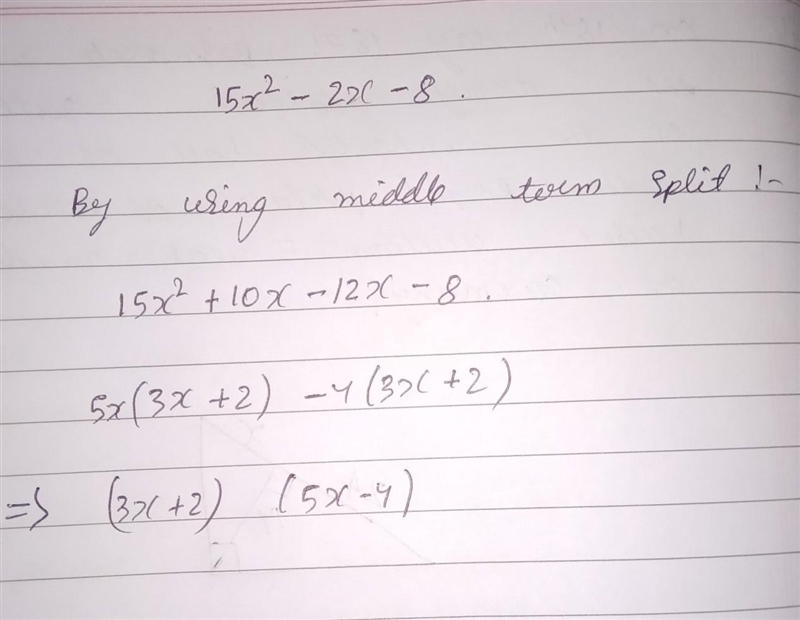 15x² - 2x - 8 .
By using middle term split :-
15x² + 10x - 12x - 8 .
5x(3x + 2) - 4(3x + 2)
=> (3x + 2) (5x - 4)